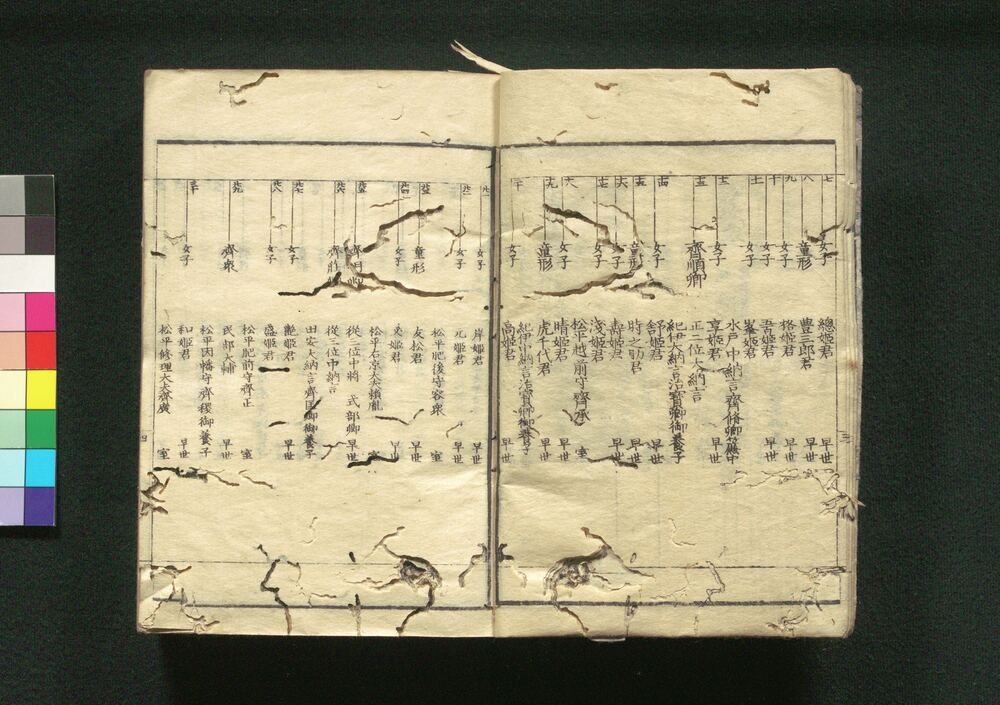 七 女子 總姫君 早世
八 童形 豊三郎君 早世
九 女子 格姫君 早世
十 女子 吾姫君 早世
十一 女子 峯姫君
水戸中納言齊脩卿簾中
女子 享姫君 早世
齊順卿 正二位大納言
紀伊大納言治寳卿御養子
十四 女子 舒姫君 早世
童形 時之助君 早世
十六 女子 壽姫君 早世
十七 女子 浅姫君
松平越前守齊承 室
女子 晴姫君 早世
十九 童形 虎千代君 早世
紀伊中納言治寳卿御養子
二十 女子 高姫君 早世
廿一 女子 岸姫君 早世
廿二 女子 元姫君 早世
松平肥後守容衆 室
廿三 童形 友松君 早世
廿四 女子 文姫君 早世
松平右京大夫頼胤
廿五 齊明卿 從三位中将 式部卿
廿六 齊莊 從三位中納言
田安大納言齊匡卿御養子
廿七 女子 艶姫君 早世
廿八 女子 盛姫君
松平肥前守齊正 室
廿九 齊衆 民部大輔 早世
松平因幡守齊稷御養子
三十 女子 和姫君 早世
松平修理大夫齊廣 室
三
四